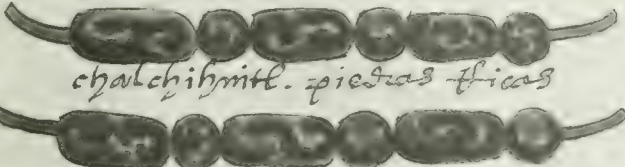 chalchihuitl. piedras rricas